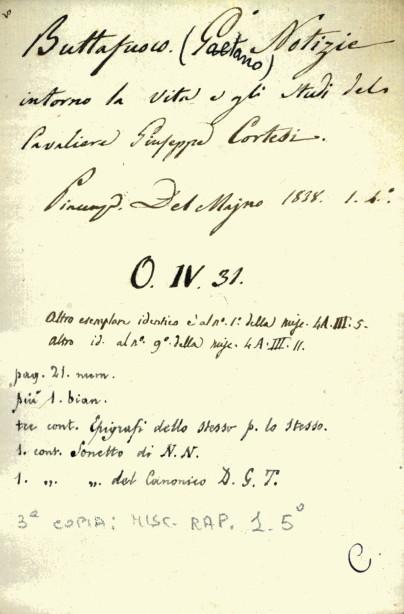 Buttafuoco. (Gaetano) Notizie
intorno la vita e gli studi del
Cavaliere Giuseppe Cortesi.
Piacenza. Del Majno 1838. 1. 4.°
O. IV. 31.
Altro esemplare identico è al n.° 1.° della misc. 4A.III.5.
Altro id. al n.° 9.° della misc. 4A.III.11.
pag. 21. num.
più 1. bian.
tre cont. Epigrafi dello stesso p. lo stesso.
1. cont. Sonetto di N. N.
1. „ „ del Canonico D. G. T.
3ª COPIA: MISC. RAP. 1. 5°
C